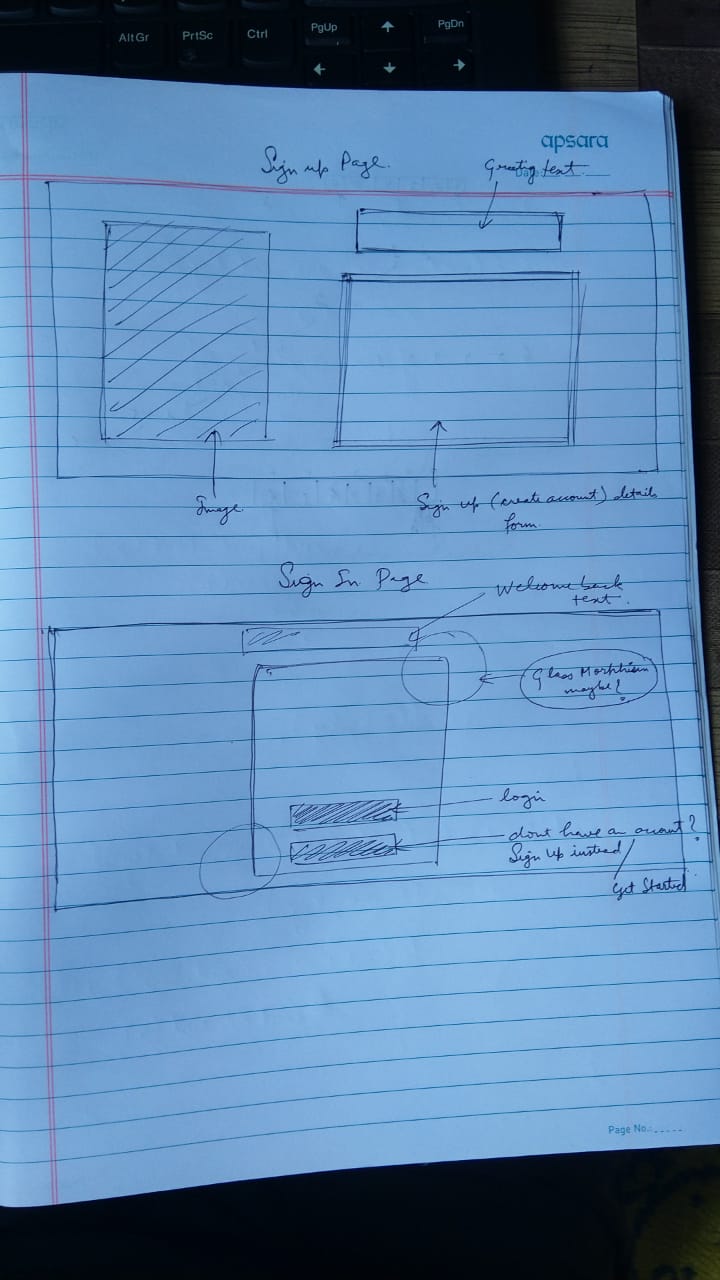 AltGr
PrtSc
Ctrl
PgUp
PgDn
apsara
Sign up Page.
Greeting text
Image.
Sign up (create account) details
form.
Sign In Page
Welcome back
text.
Glass Morphism
maybe?
login
dont have an account?
Sign Up instead/
Get Started
Page No.:.....